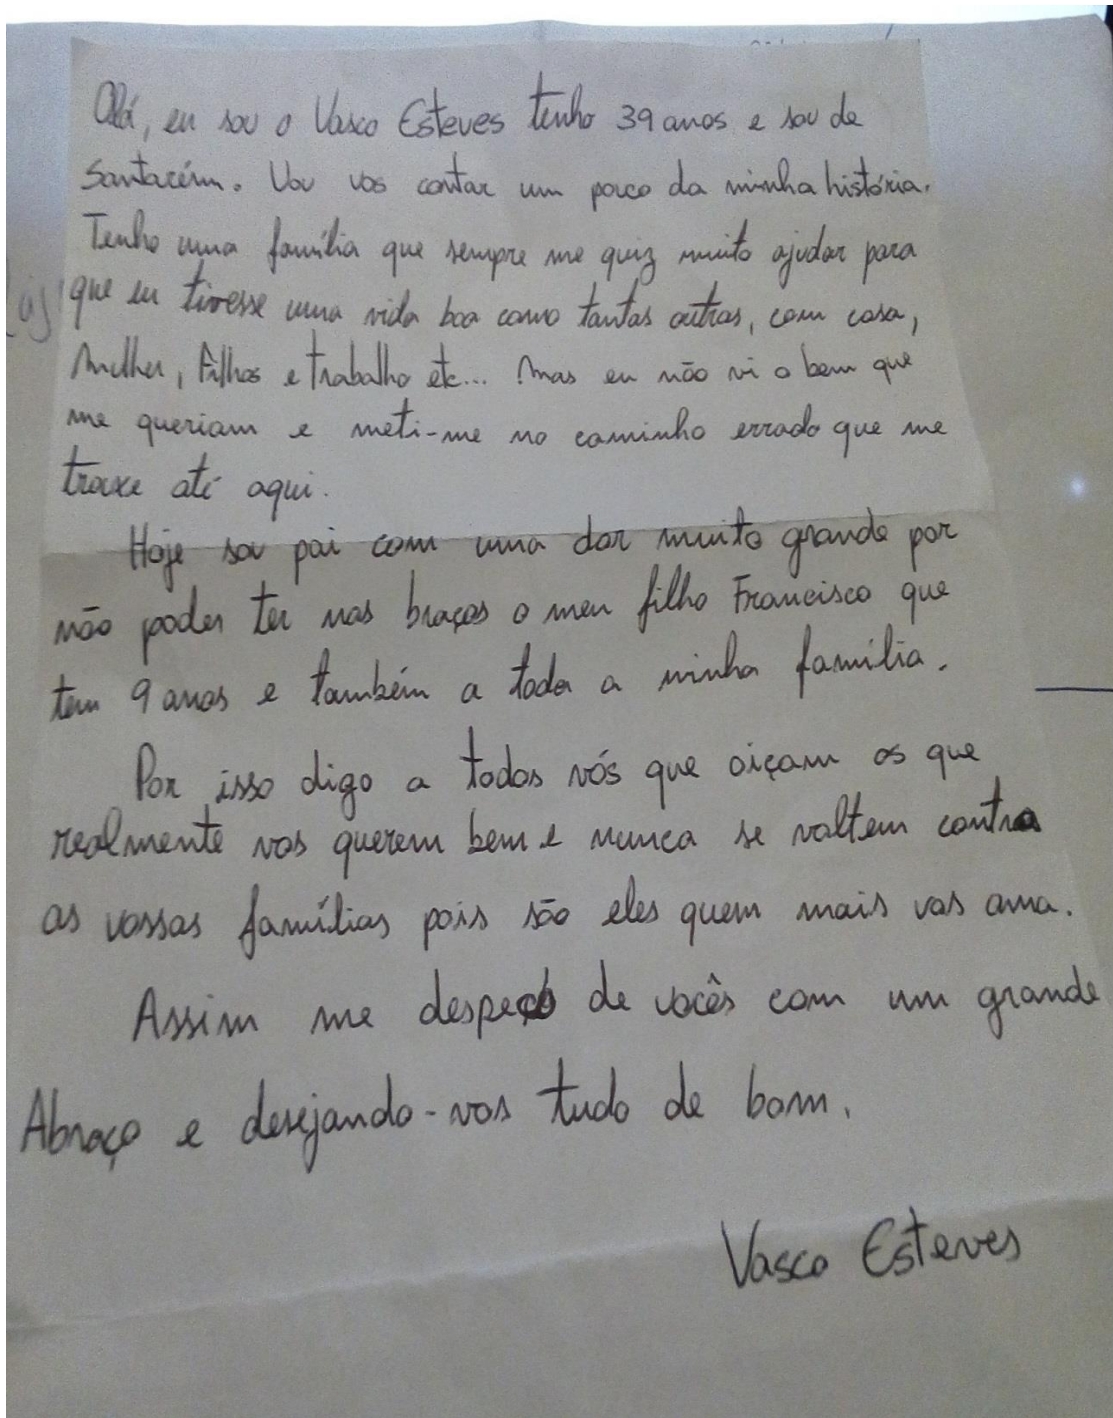 Olá, eu sou o Vasco Esteves tenho 39 anos e sou de
Santarém. Vou vos contar um pouco da minha história.
Tenho uma família que sempre me quiz muito ajudar para
que eu tivesse uma vida boa como tantas outras, com casa,
Mulher, Filhos e trabalho etc... Mas eu não vi o bem que
me queriam e meti-me no caminho errado que me
trouxe até aqui.
Hoje sou pai com uma dor muito grande por
não poder ter nos braços o meu filho Francisco que
tem 9 anos e também a toda a minha família.
Por isso digo a todos vós que oiçam os que
realmente vos querem bem e nunca se voltem contra
as vossas famílias pois são eles quem mais vos ama.
Assim me despeço de vocês com um grande
Abraço e desejando-vos tudo de bom.
Vasco Esteves